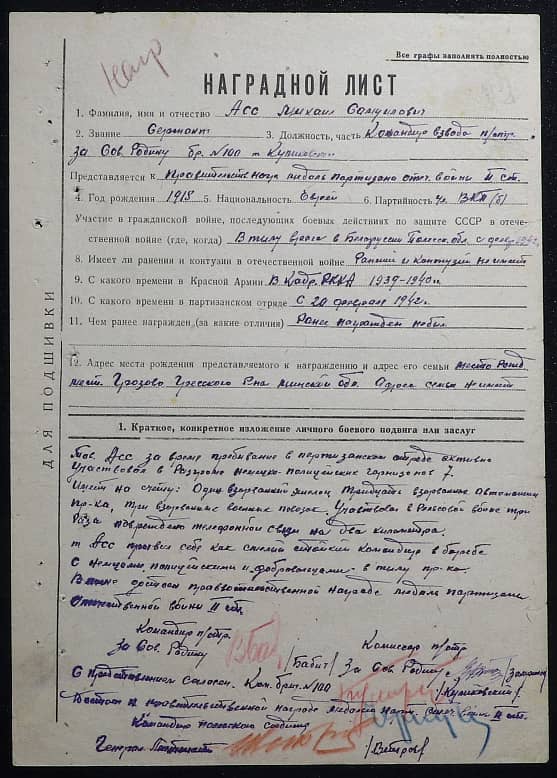 Нагр
Все графы заполнять полностью
НАГРАДНОЙ ЛИСТ
1. Фамилия, имя и отчество Асс Михаил Самуилович
2. Звание Сержант 3. Должность, часть Командир взвода п/отр.
за Сов. Родину бр. №100
Представляется к Правительств. награ медаль партизано отеч. войны II ст.
4. Год рождения 1918 5. Национальность Еврей 6. Партийность чл. ВКП(б)
Участие в гражданской войне, последующих боевых действиях по защите СССР в отече-
ственной войне (где, когда) В тылу врага в Белоруссии Полесск. обл. с февр 1942
8. Имеет ли ранения и контузии в отечественной войне Ранений и контузий не имеет
9. С какого времени в Красной Армии В кадр. РККА 1939-1940г.
10. С какого времени в партизанском отряде С 20 февраля 1942г.
11. Чем ранее награжден (за какие отличия) Ранее награжден не был
12. Адрес места рождения представляемого к награждению и адрес его семьи место Рожд
мест. Грозово Гресского Р-на Минской обл. Адреса семьи не имеет
ДЛЯ ПОДШИВКИ
1. Краткое, конкретное изложение личного боевого подвига или заслуг
Тов. Асс за время пребывание в партизанском отряде активно
Участвовал в Разгроме немецко-полицейских гарнизонов 7.
Имеет на счету: Один взорванный эшелон тридцать взорванные автомашин
пр-ка, три взорванных военных повозок. Участвовал в Рельсовой войне три
Раза повреждено телефонной связи на два километра.
т Асс проявил себе как смелый стойкий командир в борьбе
с немцами, полицейскими и „добровольцами" в тылу пр-ка.
достоен правительственной награде медаль партизани
Отечественной войны II ст.
Командир п/отр. Комиссар п/отр
За Сов. Родину /Бабит/ За Сов. Родину
С представлением согласен. Ком. бриг. №100
Достоин к правительственной награде медаль парт. отеч. войны II ст.
Командир соедин
Генерал /Ветров/